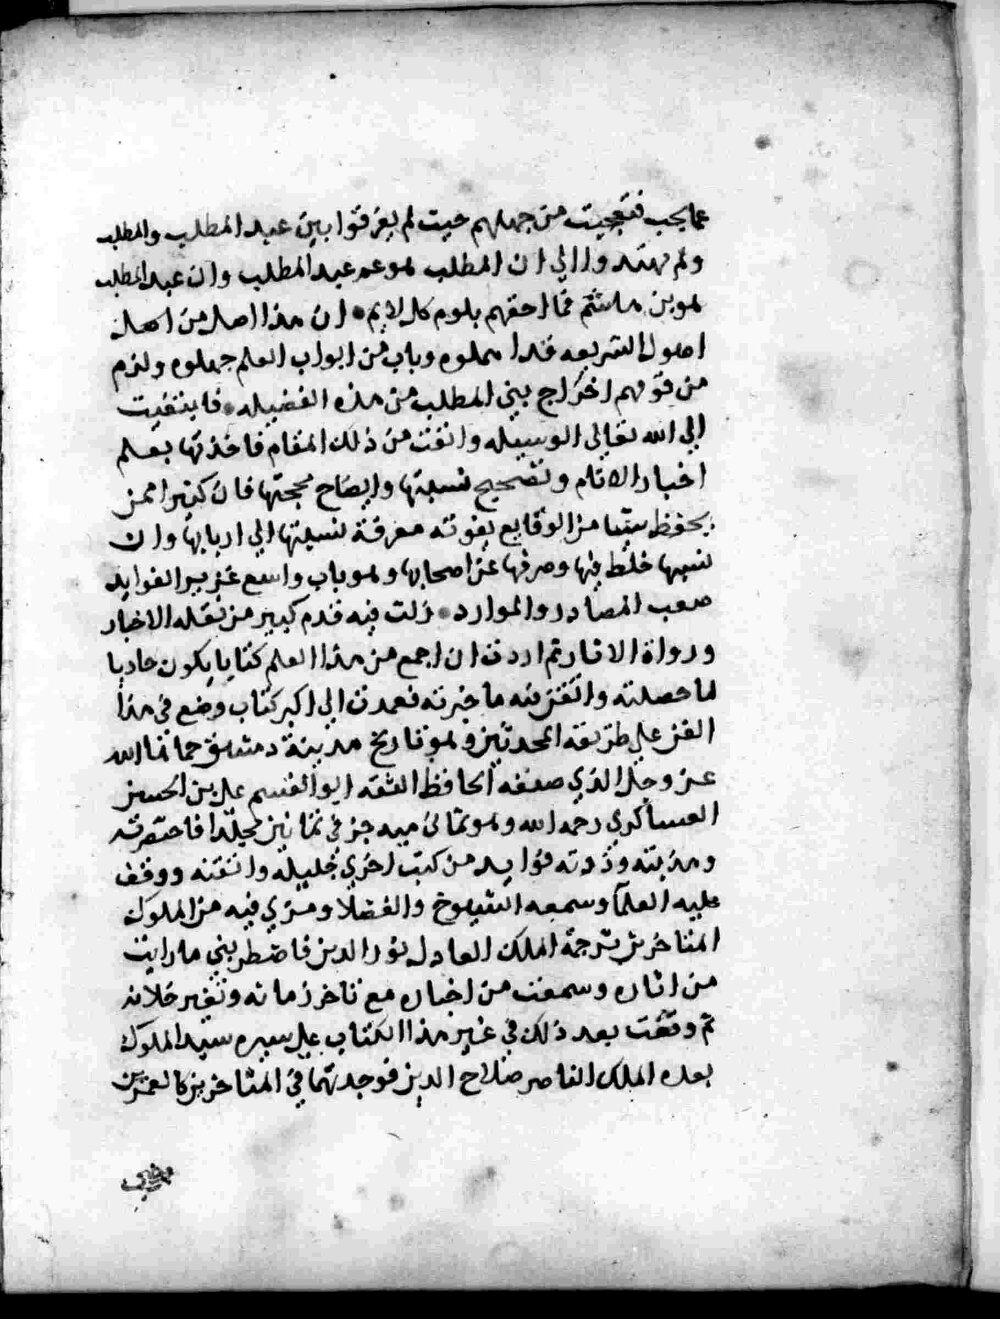 عما يجب فتعجبت من جهلهم حيث لم يفرقوا بين عبد المطلب والمطلب
ولم يهتدوا الي ان المطلب هو عم عبد المطلب وان عبد المطلب
هو بن هاشم فما احقهم بلوم كل لايم • ان هذا اصل من اصل
اصول الشريعه قد اهملوه وباب من ابواب العلم جهلوه ولزم
من قولهم اخراج بني المطلب من هذه الفضيله • فابتغيت
الي الله تعالي الوسيله وانفت من ذلك المقام فاخذتها بعلم
اخبار الانام وتصحيح نسبتها وايضاح محجتها فان كثيرا ممن
يحفظ شيا من الوقايع يفوته معرفة نسبتها الي اربابها وان
نسبها خلط فيها وصرفها عن اصحابها وهو باب واسع غزير الفوايد
صعب المصادر والموارد • زلت فيه قدم كبير من نقله الاخبار
ورواة الاثار ثم اردت ان اجمع من هذا العلم كتابا يكون حاويا
لما حصلته واتقن فيه ما خبرته فعمدت الي اكبر كتاب وضع في هذا
الفن علي طريقه المحدثين وهو تاريخ مدينة دمشق حماها الله
عز وجل الذي صنفه الحافظ الثقه ابو القسم علي بن الحسن
العساكري رحمه الله وهو ثماني ميه جز في ثمانين مجلدا فاختصرته
وهذبته وزدته فوايد من كتب اخري جليله واتقنته ووقف
عليه العلما وسمعه الشيوخ والفضلا ومر بي فيه من الملوك
المتاخرين ترجمة الملك العادل نور الدين فاضطربني ما رايت
من اثاره وسمعت من اخباره مع تاخر زمانه وتغير خلانه
ثم وقفت بعد ذلك في غير هذا الكتاب علي سيره سيد الملوك
بعده الملك الناصر صلاح الدين فوجدتهما في المتاخرين كالعمرين